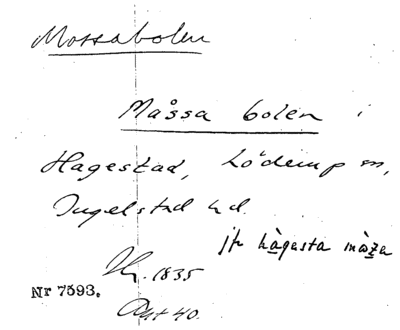 Mossabolen
Måssa bolen i
Hagestad, Löderup sn,
Ingelstad hd.
jfr hàgesta mòsa
1835
Nr 7593.
Akt 40.